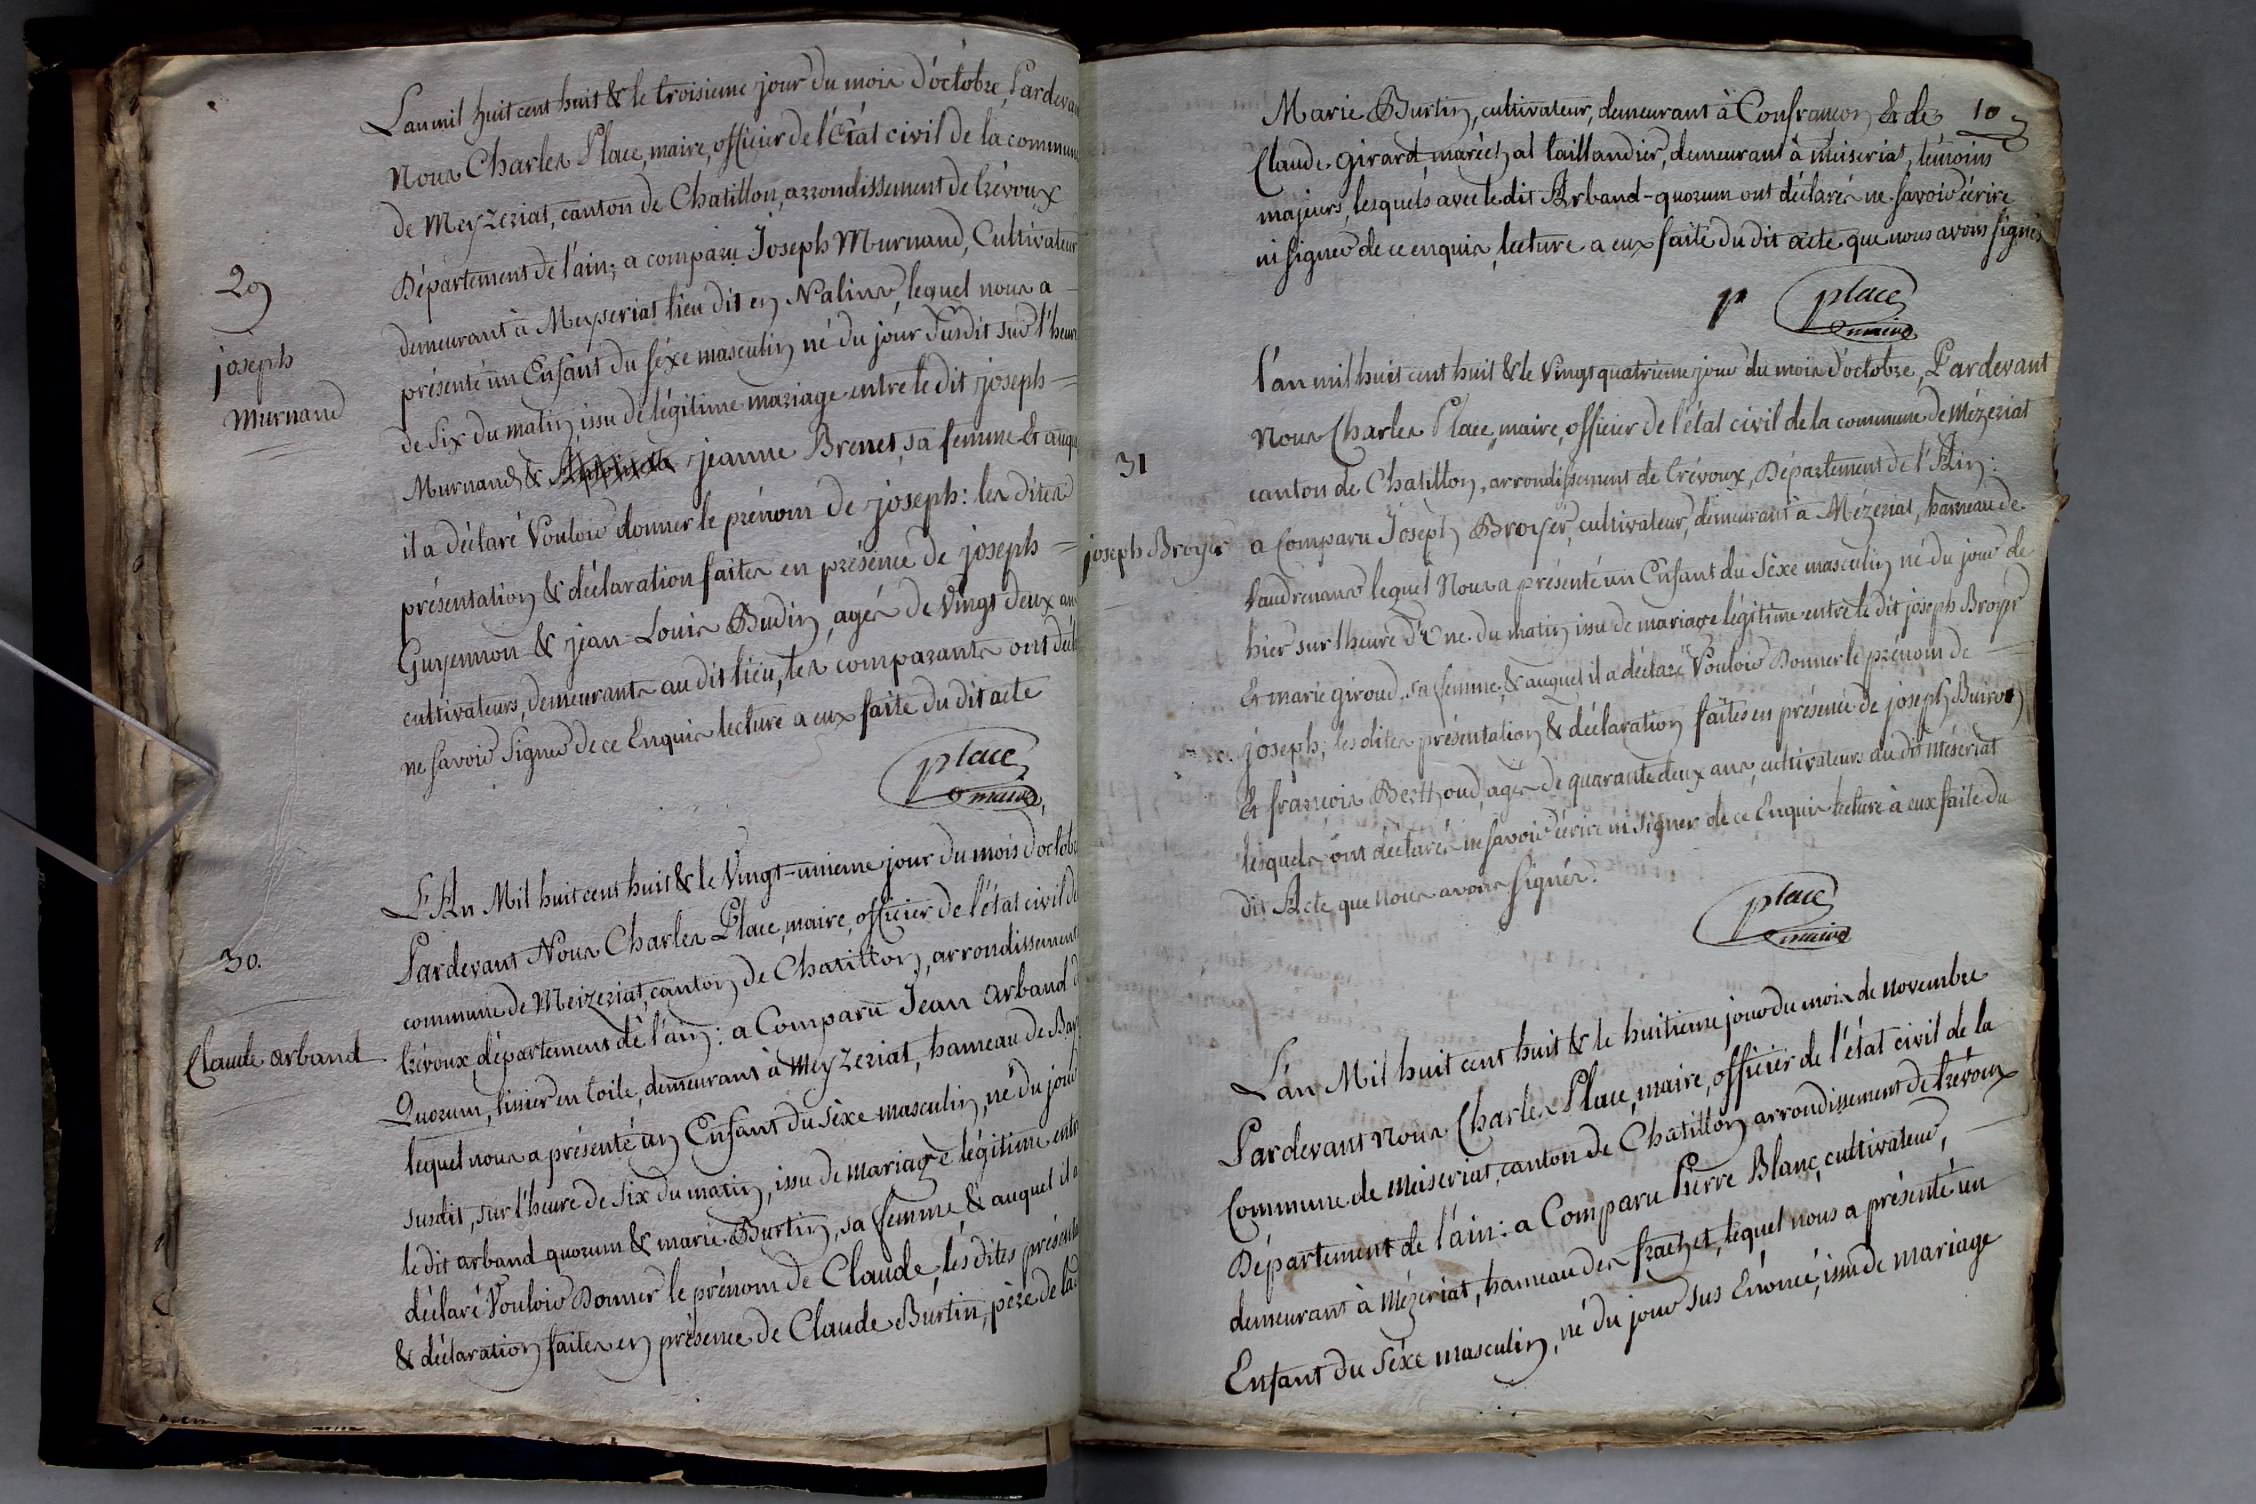 L'an mil huit cent huit & le troisieme jour du mois d'octobre, Pardevan
Nous Charles Place, maire, officier de l'État civil de la commun
de Meyzeriat, canton de Chatillon, arrondissement de trévoux
Département de l'ain; a comparu Joseph Murnand, Cultivateur
29
demeurant à Meyseriat lieu dit en Nalins, lequel nous a
joseph
présenté un Enfant du séxe masculin né du jour susdit sur l'heure
Murnand
de Six du matin issu de légitime mariage entre le dit joseph =
Murnand & jeanne Brenet, sa femme & auque
il a déclaré Vouloir donner le prénom de joseph: les dites
présentation & déclaration faites en présence de joseph =
Guyennon & jean-Louis Budin, agés de Vingt deux ans
cultivateurs, demeurants au dit lieu, les comparants ont décl
ne savoir Signer de ce Enquis lecture a eux faite du dit acte
place
maire
L'An Mil huit cent huit & le Vingt-unieme jour du mois d'octob
Pardevant Nous Charles Place, maire, officier de l'état civil de
30.
commune de Meizeriat, canton de Chatillon, arrondissement
trévoux, département de l'ain: a Comparu Jean arband d
Claude arband
Quorum, tissier en toile, demeurant à Meyzeriat, hameau de
lequel nous a présenté un Enfant du Séxe masculin, né du jour
susdit, sur l'heure de Six du matin, issu de mariage légitime entre
le dit arband quorum & marie Burtin, sa femme & auquel il a
déclaré Vouloir Donner le prénom de Claude, les dites présent
& déclaration faites en présence de Claude Burtin, père de la
Marie Burtin, cultivateur, demeurant à Confrançon & de 10
Claude Girard maréchal taillandier, demeurant à meiseriat, témoins
majeurs, lesquels avec le dit Arband-quorum ont déclarés ne savoir écrire
ni signer de ce enquis, lecture a eux faite du dit acte que nous avons signés
place
maire
l'an mil huit cent huit & le Vingt quatrieme jour du mois d'octobre, Pardevant
Nous Charles Place, maire, officier de l'état civil de la commune de Mézeriat
31
canton de Chatillon, arrondissement de trévoux, Département de l'Ain:
joseph Broyer
a Comparu Joseph Broyer, cultivateur, demeurant à Mézeriat, hameau de
Vaudrenans lequel Nous a présenté un Enfant du Séxe masculin né du jour de
hier sur l'heure d'Une du matin issu de mariage légitime entre le dit joseph Broyer
& marie giroud, sa femme, & auquel il a déclaré Vouloir Donner le prénom de
joseph; les dites présentation & déclaration faites en présence de joseph Buiron
& françois Berthoud, agés de quarante deux ans, cultivateurs au dit Méseriat
lesquels ont déclarés ne savoir écrire ni Signer de ce Enquis lecture à eux faite du
dit Acte que nous avons Signés.
place
maire
L'an Mil huit cent huit & le huitieme jour du mois de novembre
Pardevant nous Charles Place, maire, officier de l'état civil de la
Commune de Meiseriat, canton de Chatillon arrondissement de trévoux
Département de l'ain: a Comparu Pierre Blanc, cultivateur,
demeurant à Mézeriat, hameau des frachet, lequel nous a présenté un
Enfant du Séxe masculin, né du jour sus Enoncé, issu de mariage